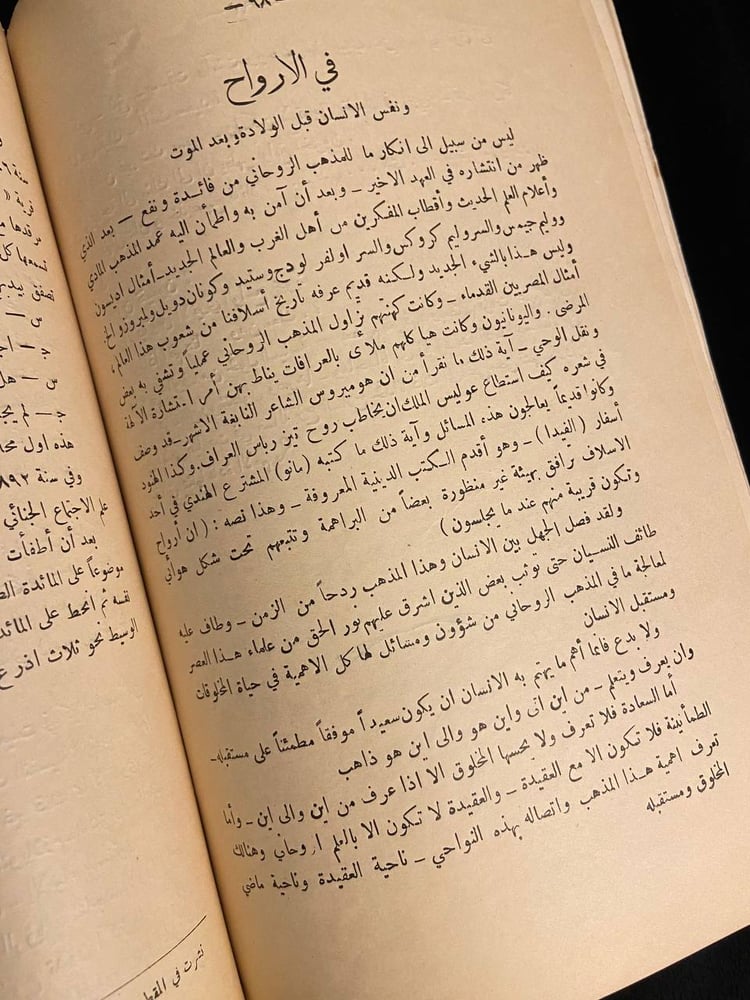 — ٦٨ —
في الارواح
ونفس الانسان قبل الولادة وبعد الموت
ليس من سبيل الى انكار ما للمذهب الروحاني من فائدة ونفع — بعد الذي
ظهر من انتشاره في العهد الاخير — وبعد أن آمن به واطمأن اليه عمد المذهب المادي
وأعلام العلم الحديث وأقطاب المفكرين من أهل الغرب والعالم الجديد — أمثال اديسون
ووليم جيمس والسر وليم كروكس والسر اولفر لودج وستيد وكونان دويل ولمبروزو الخ
وليس هذا بالشيء الجديد ولكنه قديم عرفه تاريخ أسلافنا من شعوب هذا العالم،
أمثال المصريين القدماء — وكانت كهنتهم تزاول المذهب الروحاني عملياً وتشفي به بعض
المرضى . واليونانيون وكانت هياكلهم ملأى بالعرافات يناط بهن أمر استشارة الآلهة
ونقل الوحي — آية ذلك ما نقرأ من ان هوميروس الشاعر النابغة الاشهر — قد وصف
في شعره كيف استطاع عوليس الملك ان يخاطب روح تيز رياس العراف . وكذا الهنود
وكانوا قديماً يعالجون هذه المسائل وآية ذلك ما كتبه (مانو) المشترع الهندي في أحد
أسفار (الفيدا) — وهو أقدم الكتب الدينية المعروفة — وهذا نصه : (ان أرواح
الاسلاف ترافق بهيئة غير منظورة بعضاً من البراهمة وتتبعهم تحت شكل هوائي
وتكون قريبة منهم عند ما يجلسون)
ولقد فصل الجهل بين الانسان وهذا المذهب ردحاً من الزمن — وطاف عليه
طائف النسيان حتى توثب بعض الذين اشرق عليهم نور الحق من علماء هذا العصر
لمعالجة ما في المذهب الروحاني من شؤون ومسائل لها كل الاهمية في حياة المخلوقات
ومستقبل الانسان
ولا بدع فانما أهم ما يهتم به الانسان ان يكون سعيداً موفقاً مطمئناً على مستقبله —
وان يعرف ويتعلم — من اين اتى واين هو والى اين هو ذاهب
أما السعادة فلا تعرف ولا يحسها المخلوق الا اذا عرف من اين والى اين — وأما
الطمأنينة فلا تكون الا مع العقيدة — والعقيدة لا تكون الا بالعلم الروحاني وهنالك
تعرف اهمية هذا المذهب واتصاله بهذه النواحي — ناحية العقيدة وناحية ماضي
المخلوق ومستقبله
سنة
قرية «
مرقدها
تسمعها كل
تصفق
س —
ج —
س — هل
ج — لم
هذه اول
وفي سنة ١٨٩٢
علم الاجتماع الجنائي
بعد أن أطفأت
موضوعاً على المائدة
نفسه ثم انحط على
الوسيط نحو ثلاث اذرع
نشرت في